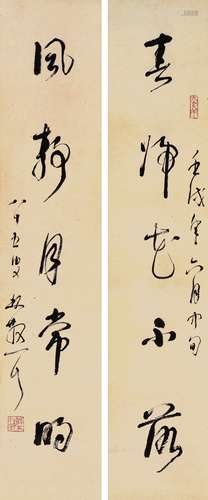 春歸花不落
壬戌年六月中旬
風靜月常明
八十五叟林散耳